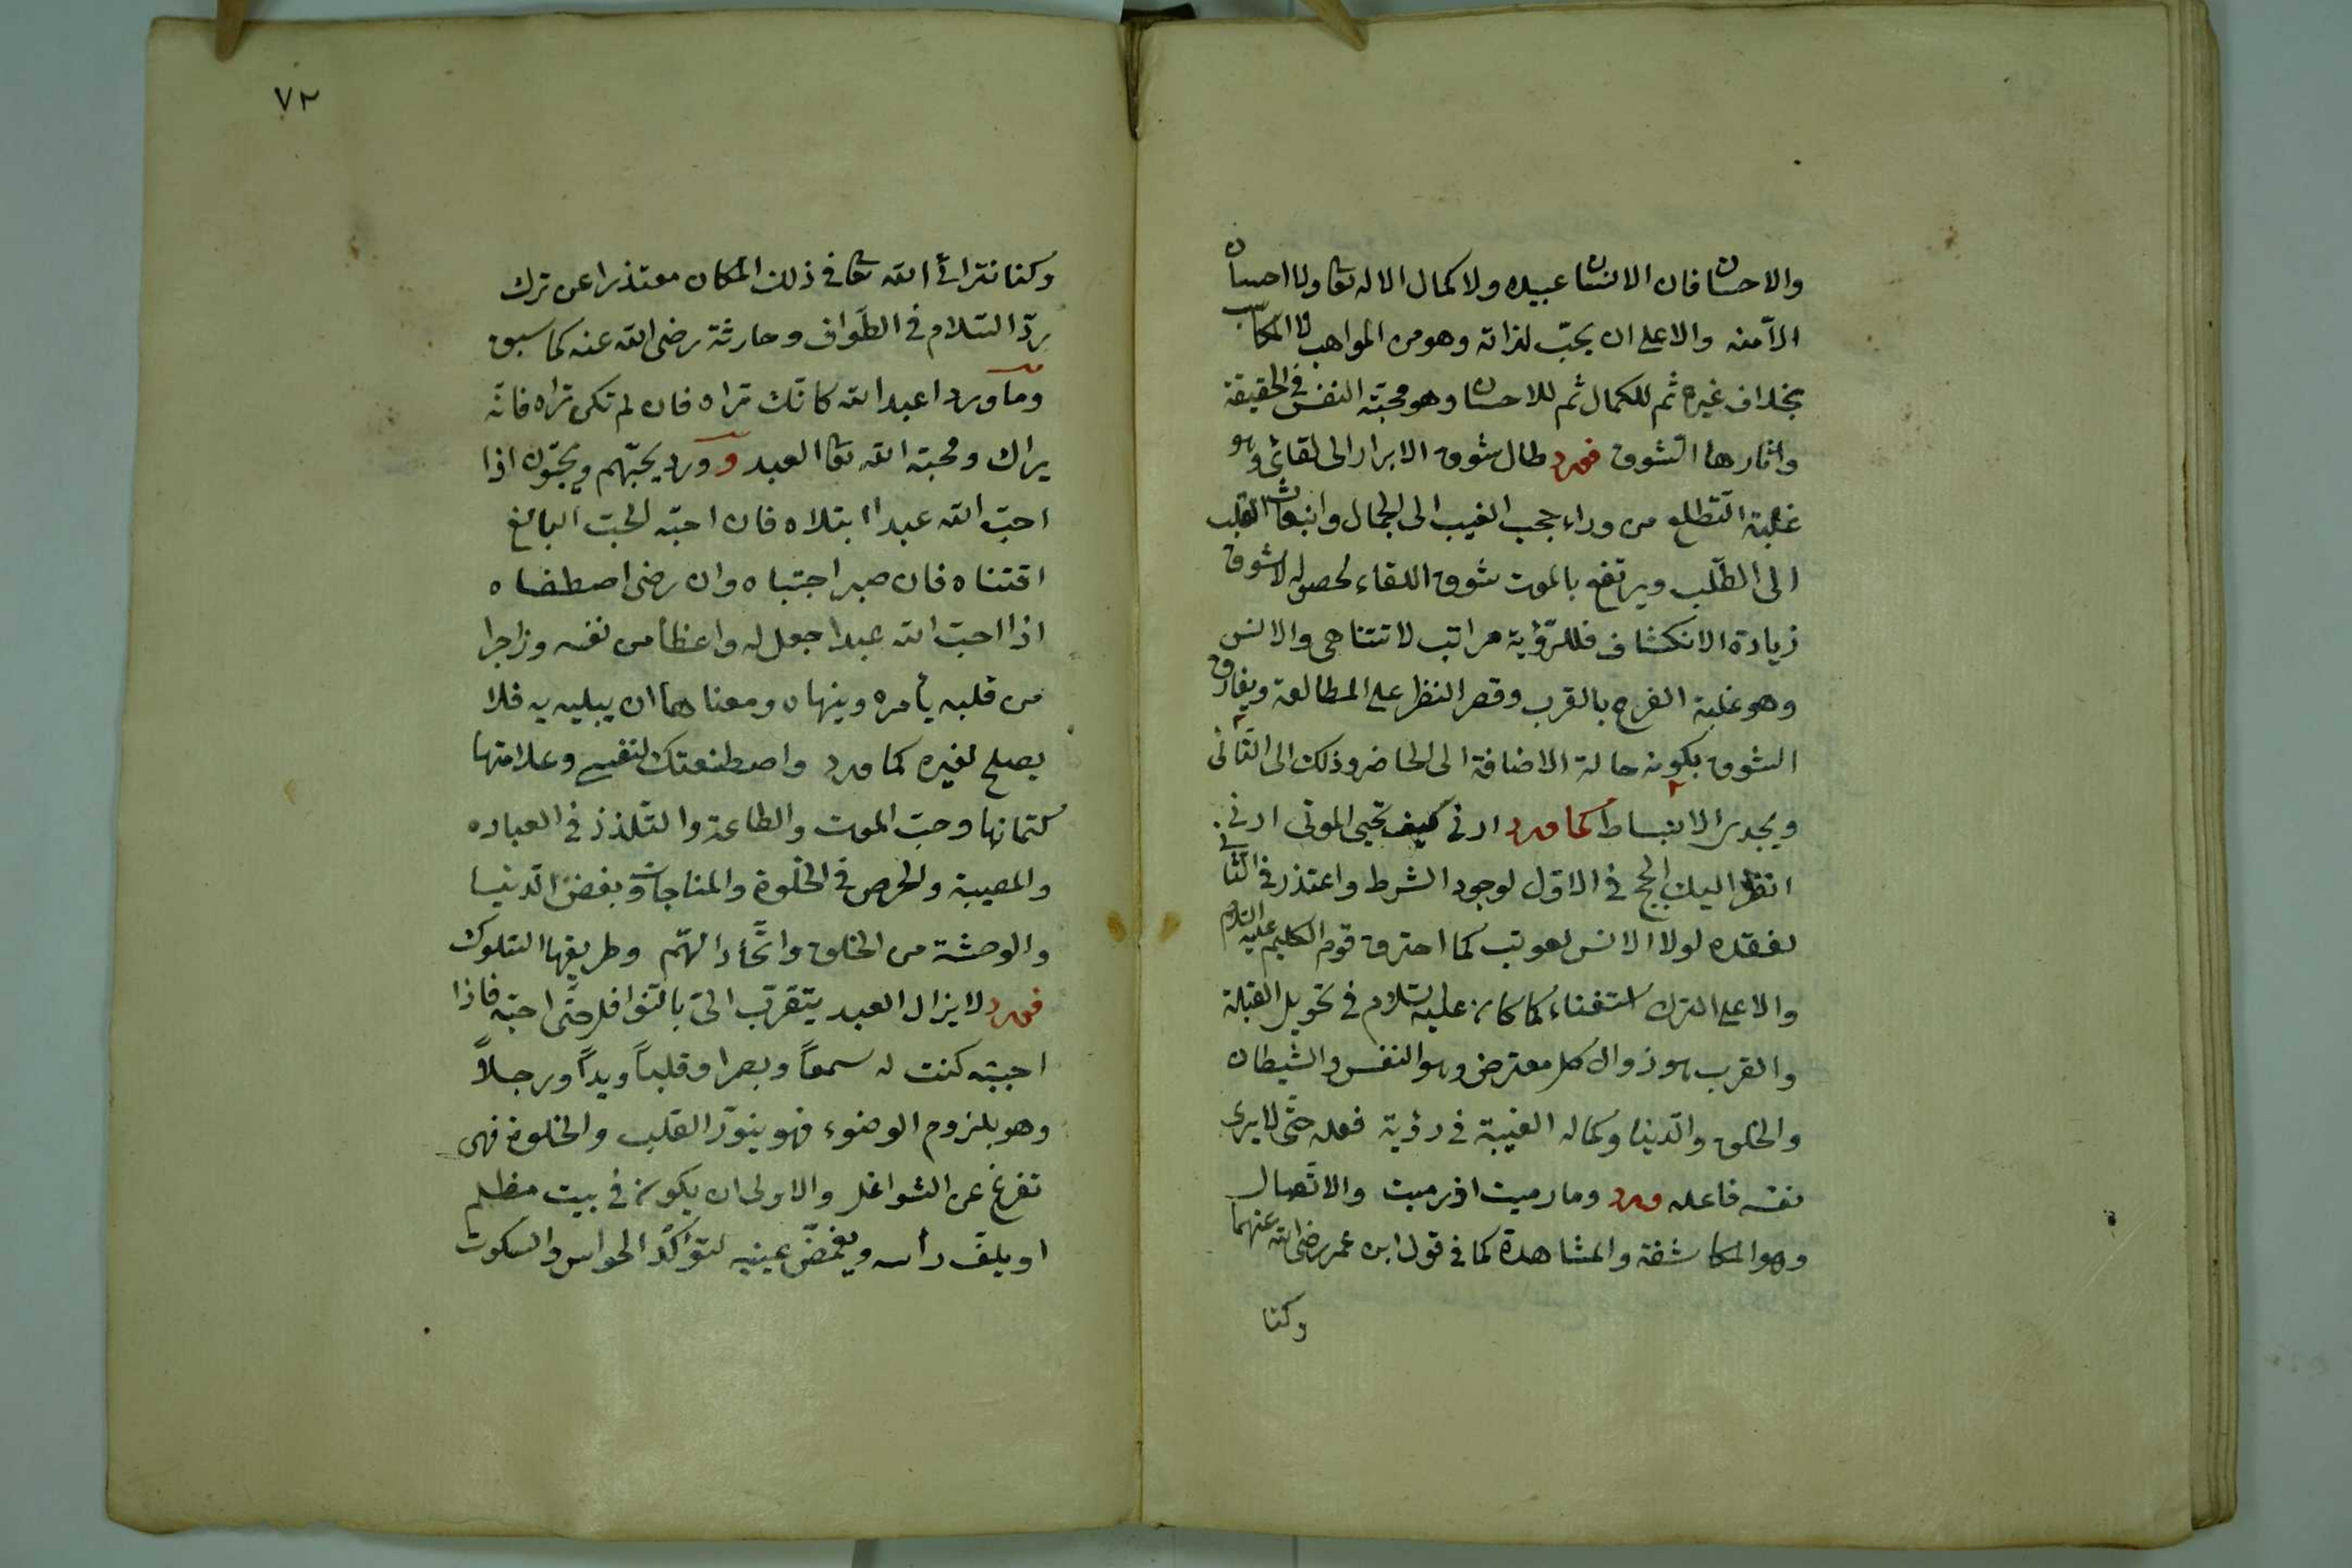 والاحسان فان الانسان عبيده ولا كمال الا له تعا ولا احسان
الا منه والاعلى ان يحبّ لذاته وهو من المواهب لا المكاسب
بخلاف غيره ثم للكمال ثم للاحسان وهو محبته النفس فى الحقيقة
واثارها الشوق فورد طال شوق الابرار الى لقائى وهو
غلبة التطلع من وراء حجب الغيب الى الجمال وانبعاث القلب
الى الطّلب ويرتفع بالموت شوق اللقاء لحصوله لا شوق
زيادة الانكشاف فللرّؤية مراتب لا تتناهى والانس
وهو غلبة الفرح بالقرب وقصر النظر على المطالعة ويفارق
الشوق بكونه حالة الاضافة الى الحاضر وذلك الى الثانى
ويجدير الانبساط كما ورد ارنى كيف تحيى الموتى ارنى
انظر اليك الحج فى الاول لوجود الشرط واعتذر فى الثانى
لفقده لولا الانس لعوتب كما احترق قوم الكليم عليه السلام
والاعلى الترك استغناء كما كان عليه السلام فى تحويل القبلة
والقرب هو زوال كل معترض وهو النفس والشيطان
والخلق والدنيا وكماله الغيبة فى رؤية فعله حتّى لا يرى
نفسه فاعله ورد وما رميت اذ رميت والاتصال
وهو المكاشفة والمشاهدة كما فى قول ابن عمر رضى الله عنهما
وكنا
٧٢
وكنا نتراأى الله تعا فى ذلك المكان معتذرا عن ترك
ردّ السّلام فى الطّواف وحارثة رضى الله عنه كما سبق
وما ورد اعبد الله كانّك تراه فان لم تكن تراه فانّه
يراك ومحبته الله تعا العبد وورد يحبّهم ويحبّونه اذا
احبّ الله عبدا ابتلاه فان احبّه الحبّ البالغ
اقتناه فان صبر اجتباه وان رضى اصطفاه
اذا احبّ الله عبدا جعل له واعظا من نفسه وزاجرا
من قلبه يأمره وينهاه ومعناهما ان يبليه به فلا
يصلح لغيره كما ورد واصطنعتك لنفسى وعلامتها
كتمانها وحبّ الموت والطاعة والتلذذ فى العباده
والمصيبة والحرص فى الخلوة والمناجات وبغض الدنيا
والوحشة من الخلق واتّحاد الهمّ وطريقها السّلوك
فورد لا يزال العبد يتقرّب الىّ بالنوافل حتّى احبّه فاذا
احببته كنت له سمعاً وبصرا وقلباً ويداً ورجلاً
وهو بلزوم الوضوء فهو ينوّر القلب والخلوة فهى
تفرغ عن الشواغل والاولى ان يكون فى بيت مظلم
او يلفّ رأسه ويغمّض عينيه لتوأكد الحواس والسكوت